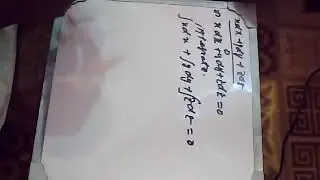 xdx + ydy + zdz
0
⇒ xdx + ydy + zdz = 0
integrate.
∫xdx + ∫ydy + ∫zdz = 0